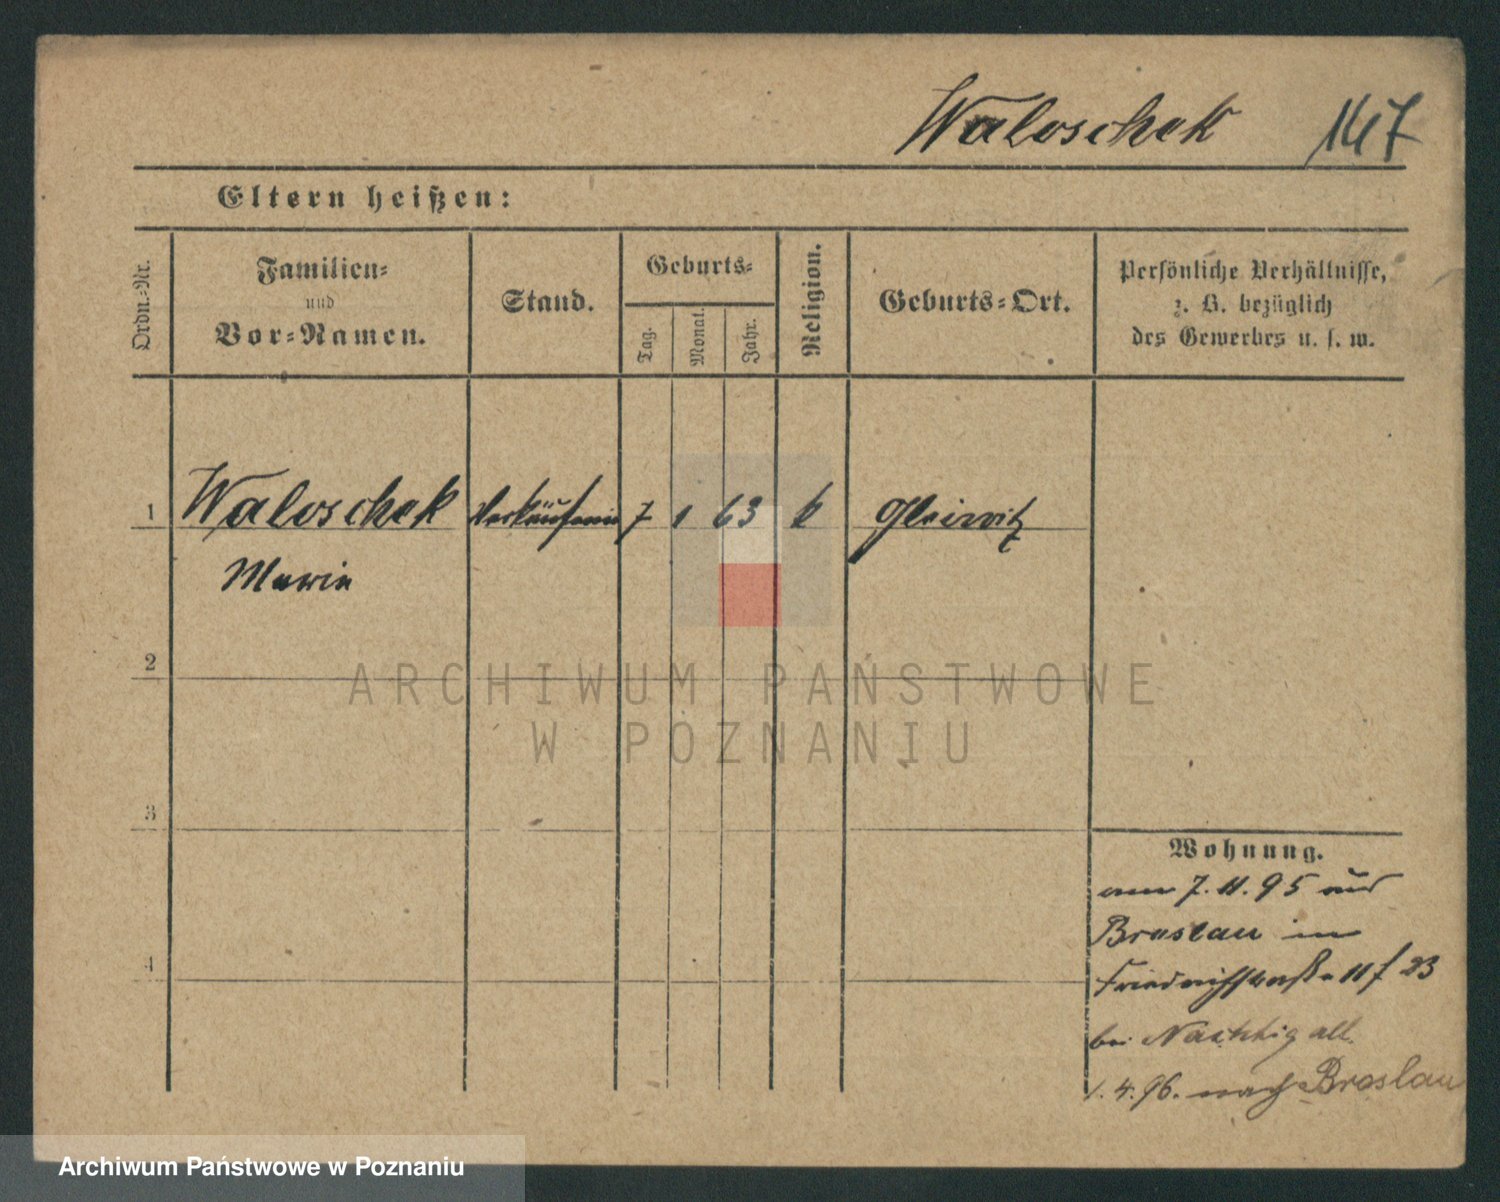 Waloschek 147
Eltern heißen:
Ordn.-Nr.
Familien-
und
Vor-Namen.
Stand.
Geburts-
Tag.
Monat.
Jahr.
Religion.
Geburts-Ort.
Persönliche Verhältnisse,
z. B. bezüglich
des Gewerbes u. s. w.
1 Waloschek Verkäuferin 7 1 63 k Gleiwitz
Marie
2
ARCHIWUM PAŃSTWOWE
W POZNANIU
3
Wohnung.
am 7. 11. 95 aus
Breslau in
4
Friedrichstraße 11 f 23
bei Nachtigall
1. 4. 96. nach Breslau
Archiwum Państwowe w Poznaniu